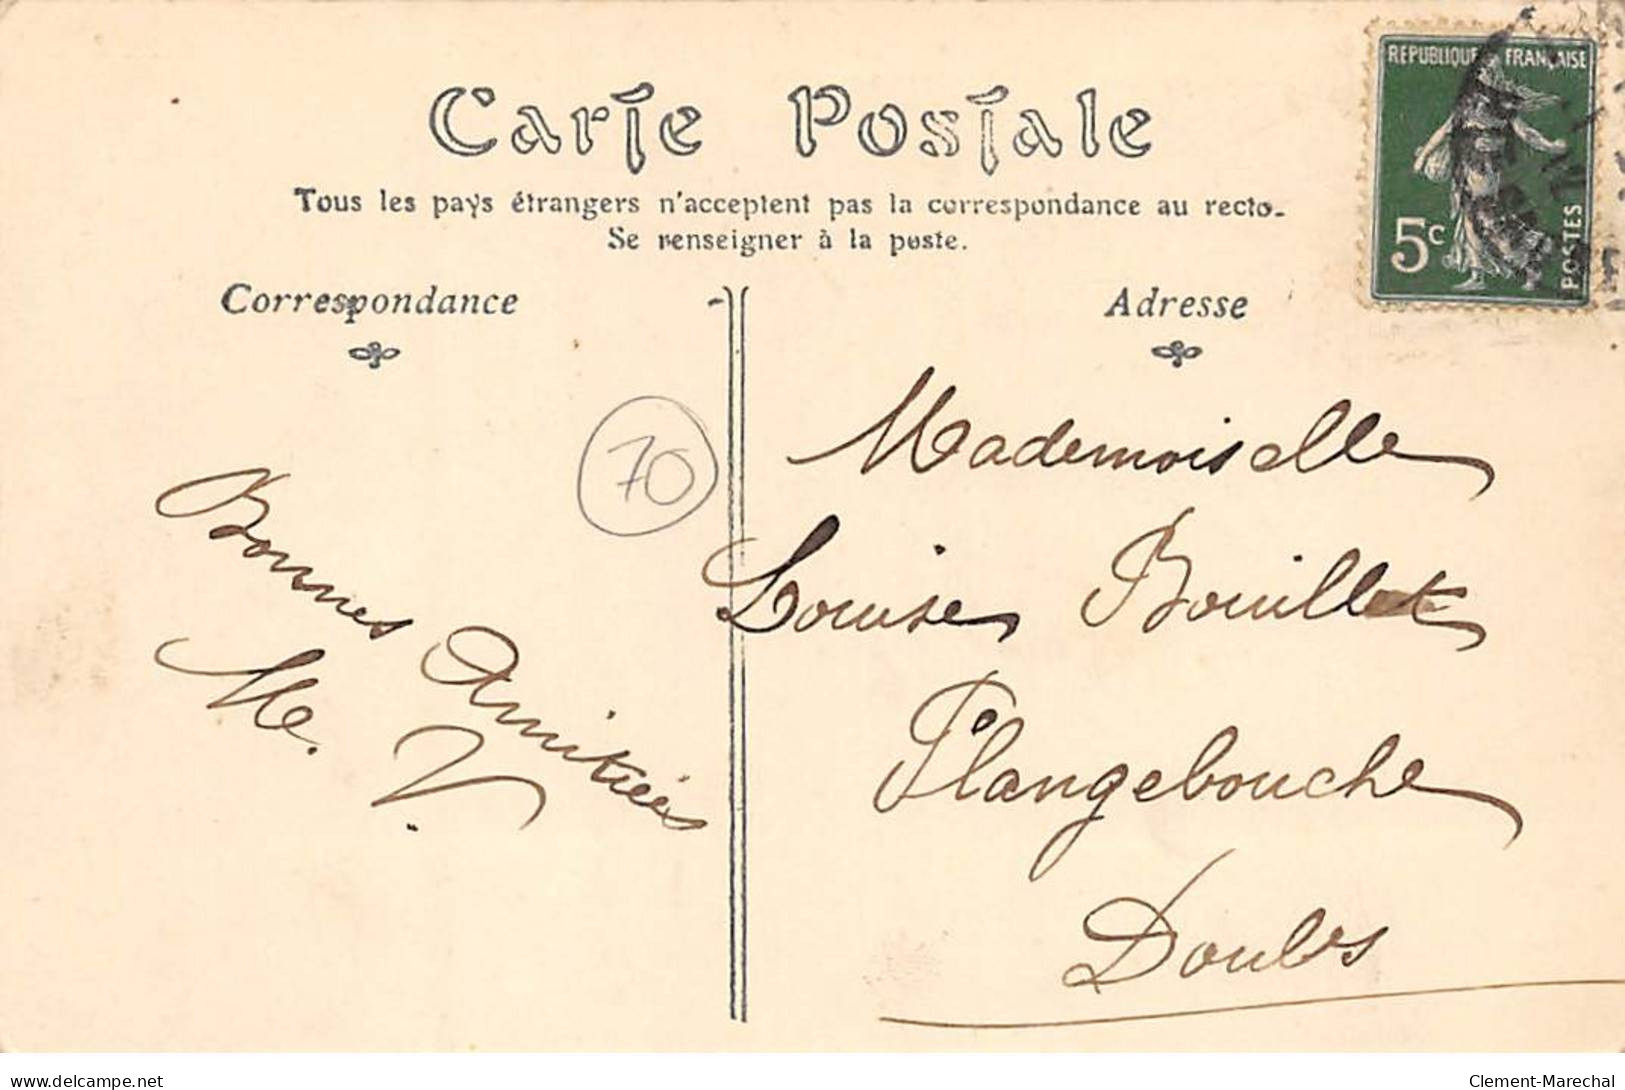 Carte Postale
REPUBLIQUE FRANÇAISE
5c
POSTES
Tous les pays étrangers n'acceptent pas la correspondance au recto.
Se renseigner à la poste.
Correspondance
Adresse
70
Bonnes Amitiées
M. V.
Mademoiselle
Louise Bouillet
Plangebouche
Doubs
delcampe.net
Clement-Marechal